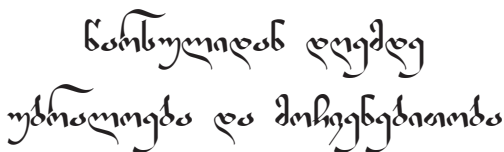 წარსულიდან დღემდე
უბრალოება და მოჩვენებითობა